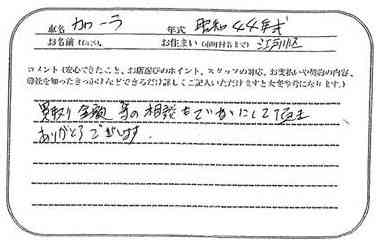 車名 カローラ 年式 昭和44年式
お名前 お住まい(市町村名まで) 江戸川区
コメント(安心できたこと、お店選びのポイント、スタッフの対応、お支払いや契約の内容、
弊社を知ったきっかけなどできるだけ詳しくご記入いただけますと大変参考になります。)
買取り金額 等の相談も していただき
ありがとうございます。